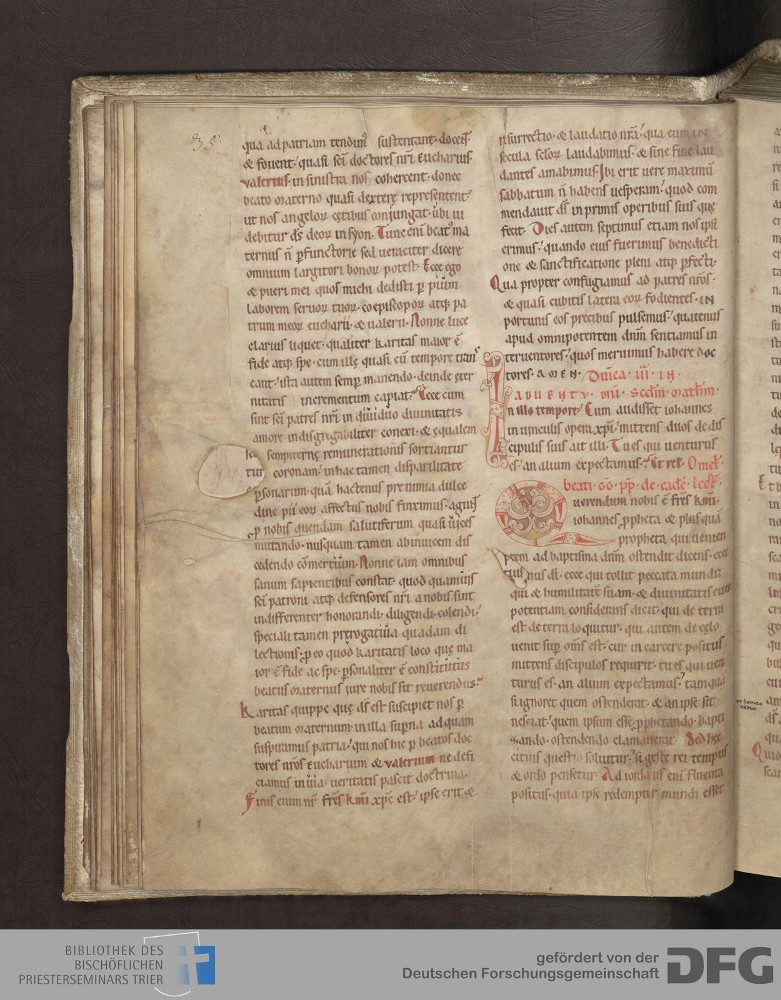 qua ad patriam tendim᷒ sustentant· docent
& fouent· quasi sc̄i doctores nr̄i Eucharius
valerius· in sinistra nos coherceent· donec
beato materno quasi dexterę representent᷒
ut nos angeloꝝ cętibus coniungat· ubi ui
debitur d̄s deoꝝ in syon· Tunc eni beat᷒ ma
ternus n̄ ꝑfunctorie sed ueraciter dicere
omnium largitori bonoꝝ potest· Ecce ego
& pueri mei quos michi dedisti ꝑ pium
laborem seruoꝝ tuoꝝ· coepiscopoꝝ atq; pa
trum meoꝝ eucharii· & ualerii· Nonne luce
clarius liquet· qualiter karitas maior ē
fide atq; spe· cum illę quasi cū tempore trans
eant· ista autem semꝑ manendo· deinde ęter
nitatis incrementum capiat· Ecce cum
sint sc̄i patres nr̄i in diuiduo diuinitatis
amore indisgregabiliter conexi· & ęqualem
sempiternę remunerationis sortiantur
coronam· in hac tamen disparilitate
ꝑsonarum· quā hactenus pre nimia dulce
dine pii eoꝝ affectus nobis finximus·
ꝓ nobis quendam salutiferum quasi
mutando· nusquam tamen abinuicem dis
cedendo cōmertium· Nonne iam omnibus
sanum sapientibus constat· quod quamuis
sc̄i patroni atq; defensores nr̄i a nobis sint
indifferenter honorandi· diligendi· colendi·
speciali tamen prerogatiua quadam di
lectionis· ꝓ eo quod karitatis loco quę ma
ior ē fide ac spe· ꝑsonaliter ē constitutus
beatus maternus iure nobis sit reuerendus·
Karitas quippe quę d̄s est suscipiet nos ꝑ
beatum maternum· in illa suꝑna ad quam
suspiramus patria· qui nos hic ꝑ beatos doc
tores nr̄os Eucharium & valerium ne defi
ciamus in uia· ueritatis pascit doctrina·
Finis enim nr̄ fr̄es k̄mi xp̄c est· ipse erit &
resurrectio· & laudatio nr̄a· qua eum in
secula scloꝝ laudabimus· & sine fine lau
dantes amabimus· Ibi erit uere maximū
sabbatum n̄ habens uesperam· quod com
mendauit d̄s in primis operibus suis quę
fecit· Dies autem septimus etiam nos ipsi
erimus· quando eius fuerimus benedicti
one & sanctificatione pleni atq; ꝑfecti·
Qua propter confugiamus ad patres nr̄os·
& quasi cubitis latera eoꝝ fodientes· in
portunis eos precibus pulsemus· quatenus
apud omnipotentem dn̄m sentiamus in
teruentores· quos meruimus habere doc
tores· AMEN· Dn̄ica iii· in
Aduentu· dn̄i· Secdm̄ matħm·
In illo tempore· Cum audisset iohannes
in uinculis opera xp̄i· mittens duos de dis
cipulis suis ait illi· Tu es qui uenturus
es· an alium expectamus· Et rel· Omel·
beati· GG· pp̄· de· eadē· lect̄·
Querendum nobis ē fr̄es k̄mi·
iohannes ꝓpheta & plus quā
propheta· qui uenien
tem ad baptisma dn̄m ostendit dicens· ecce
agnus di· ecce qui tollit peccata mundi·
qui & humilitatē suam· & diuinitatis eius
potentiam considerans dicit· qui de terra
est de terra loquitur· qui autem de cęlo
uenit suꝑ om̄s est· cur in carcere positus
mittens discipulos requirit· tu es qui uen
turus es· an alium expectamus· tamquā
si ignoret quem ostenderat· & an ipse sit
nesciat· quem ipsum esse ꝓphetando· bapti
zando· ostendendo clamauerat· Sed hęc
citius questio soluitur· si gestę rei tempus
& ordo pensetur· Ad iordanis eni fluenta
positus· quia ipse redemptor mundi esset
BIBLIOTHEK DES
BISCHÖFLICHEN
PRIESTERSEMINARS TRIER
gefördert von der
Deutschen Forschungsgemeinschaft
DFG